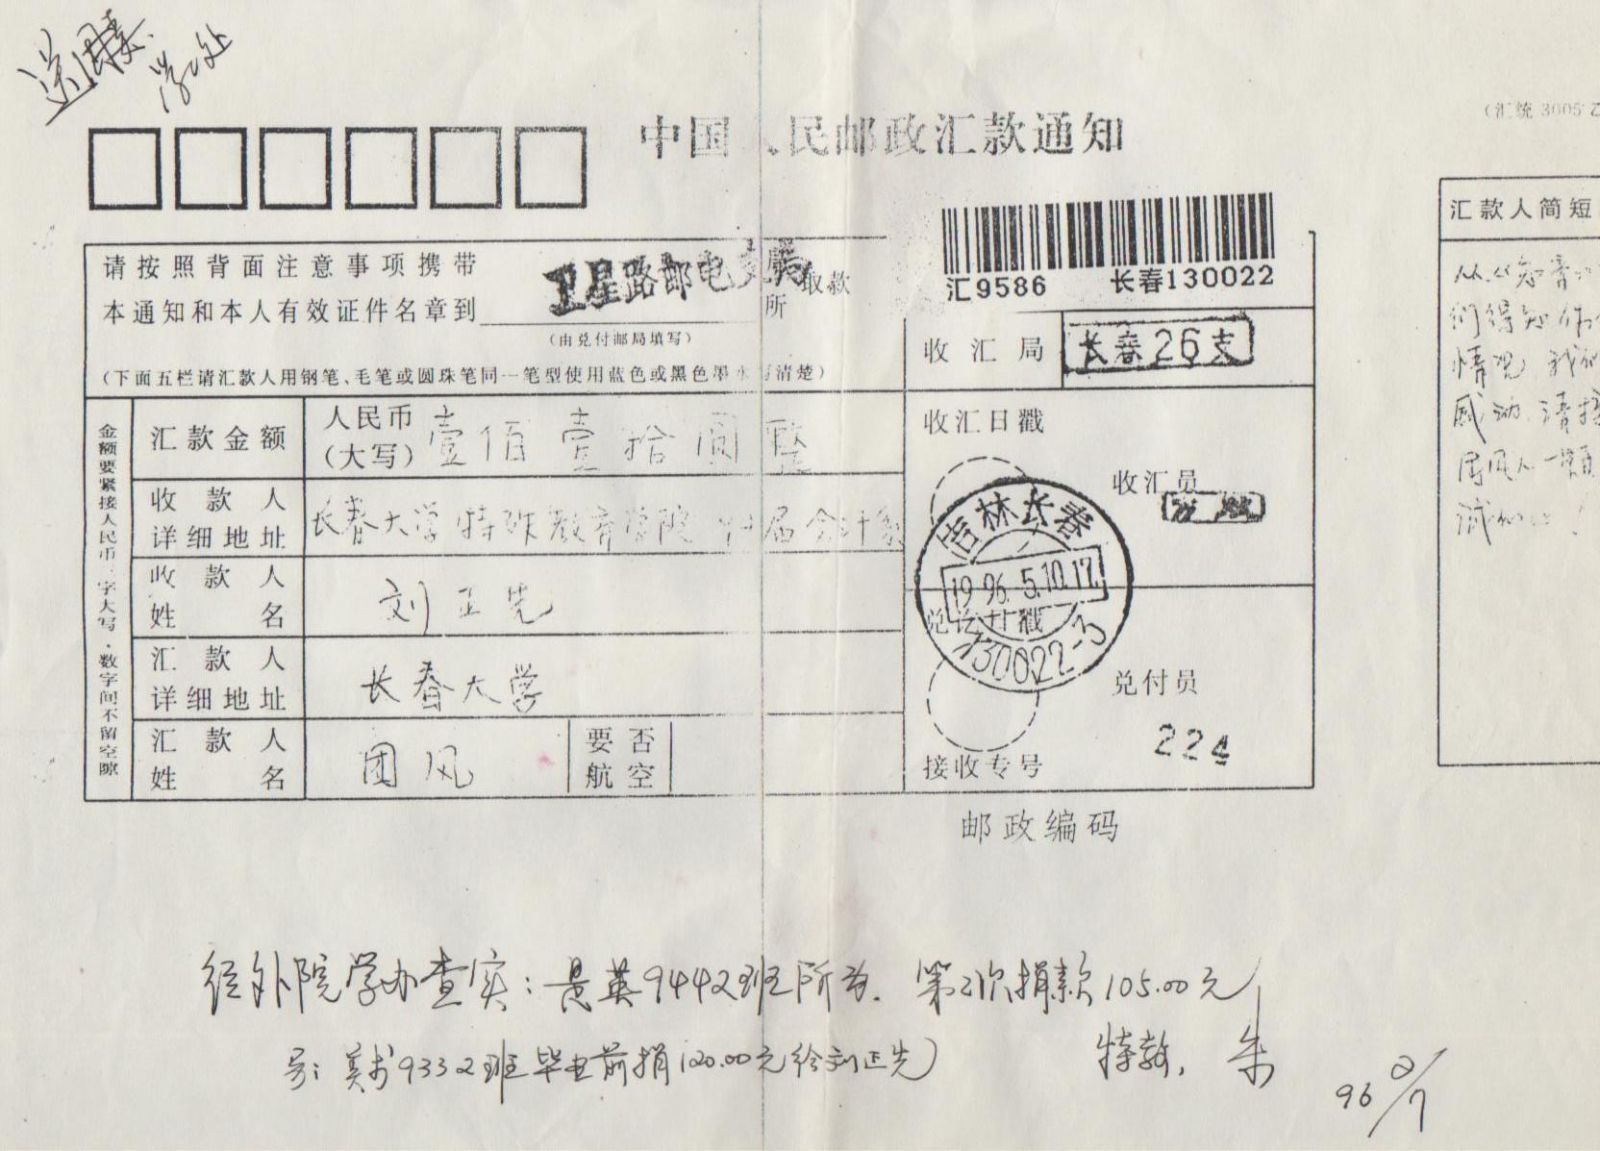 学工处
中国人民邮政汇款通知
(汇统 3605乙
汇9586 长春130022
请按照背面注意事项携带
本通知和本人有效证件名章到 卫星路邮电支局 取款
所
(由兑付邮局填写)
(下面五栏请汇款人用钢笔、毛笔或圆珠笔同一笔型使用蓝色或黑色墨水写清楚)
金额要紧接人民币三字大写,数字间不留空隙
汇款金额 人民币(大写) 壹佰壹拾圆整
收款人详细地址 长春大学特殊教育学院 届会计系
收款人姓名 刘正先
汇款人详细地址 长春大学
汇款人姓名 团风 要否航空
收汇局 长春26支
收汇日戳
收汇员
吉林长春
1996.5.10.17
130022-3
兑付日戳
兑付员
224
接收专号
邮政编码
汇款人简短
从《知青
们得知你
情况,我们
感动,请接
团风人一颗
诚的心!
经外院学办查实:是英9442班所为. 第2次捐款105.00元
另: 美术9332班毕业前捐120.00元给刘正先)
特教, 朱
96 2/7